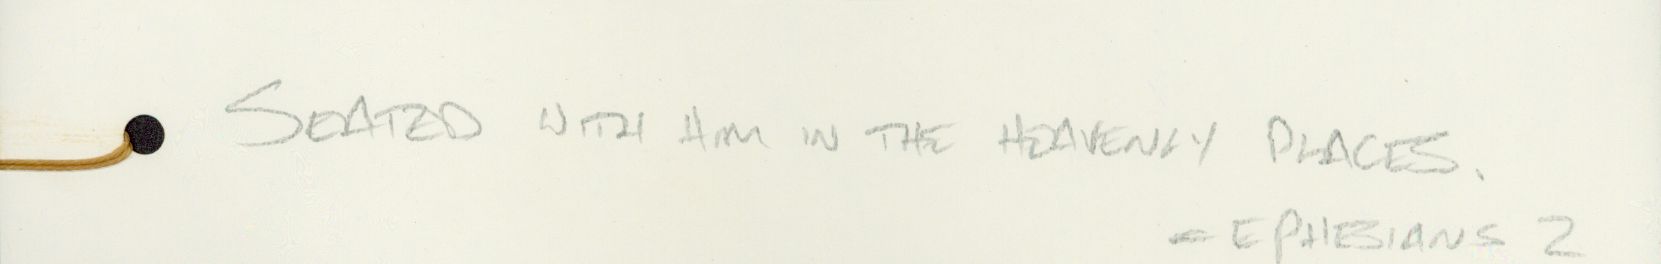 SEATED WITH HIM IN THE HEAVENLY PLACES.
- EPHESIANS 2